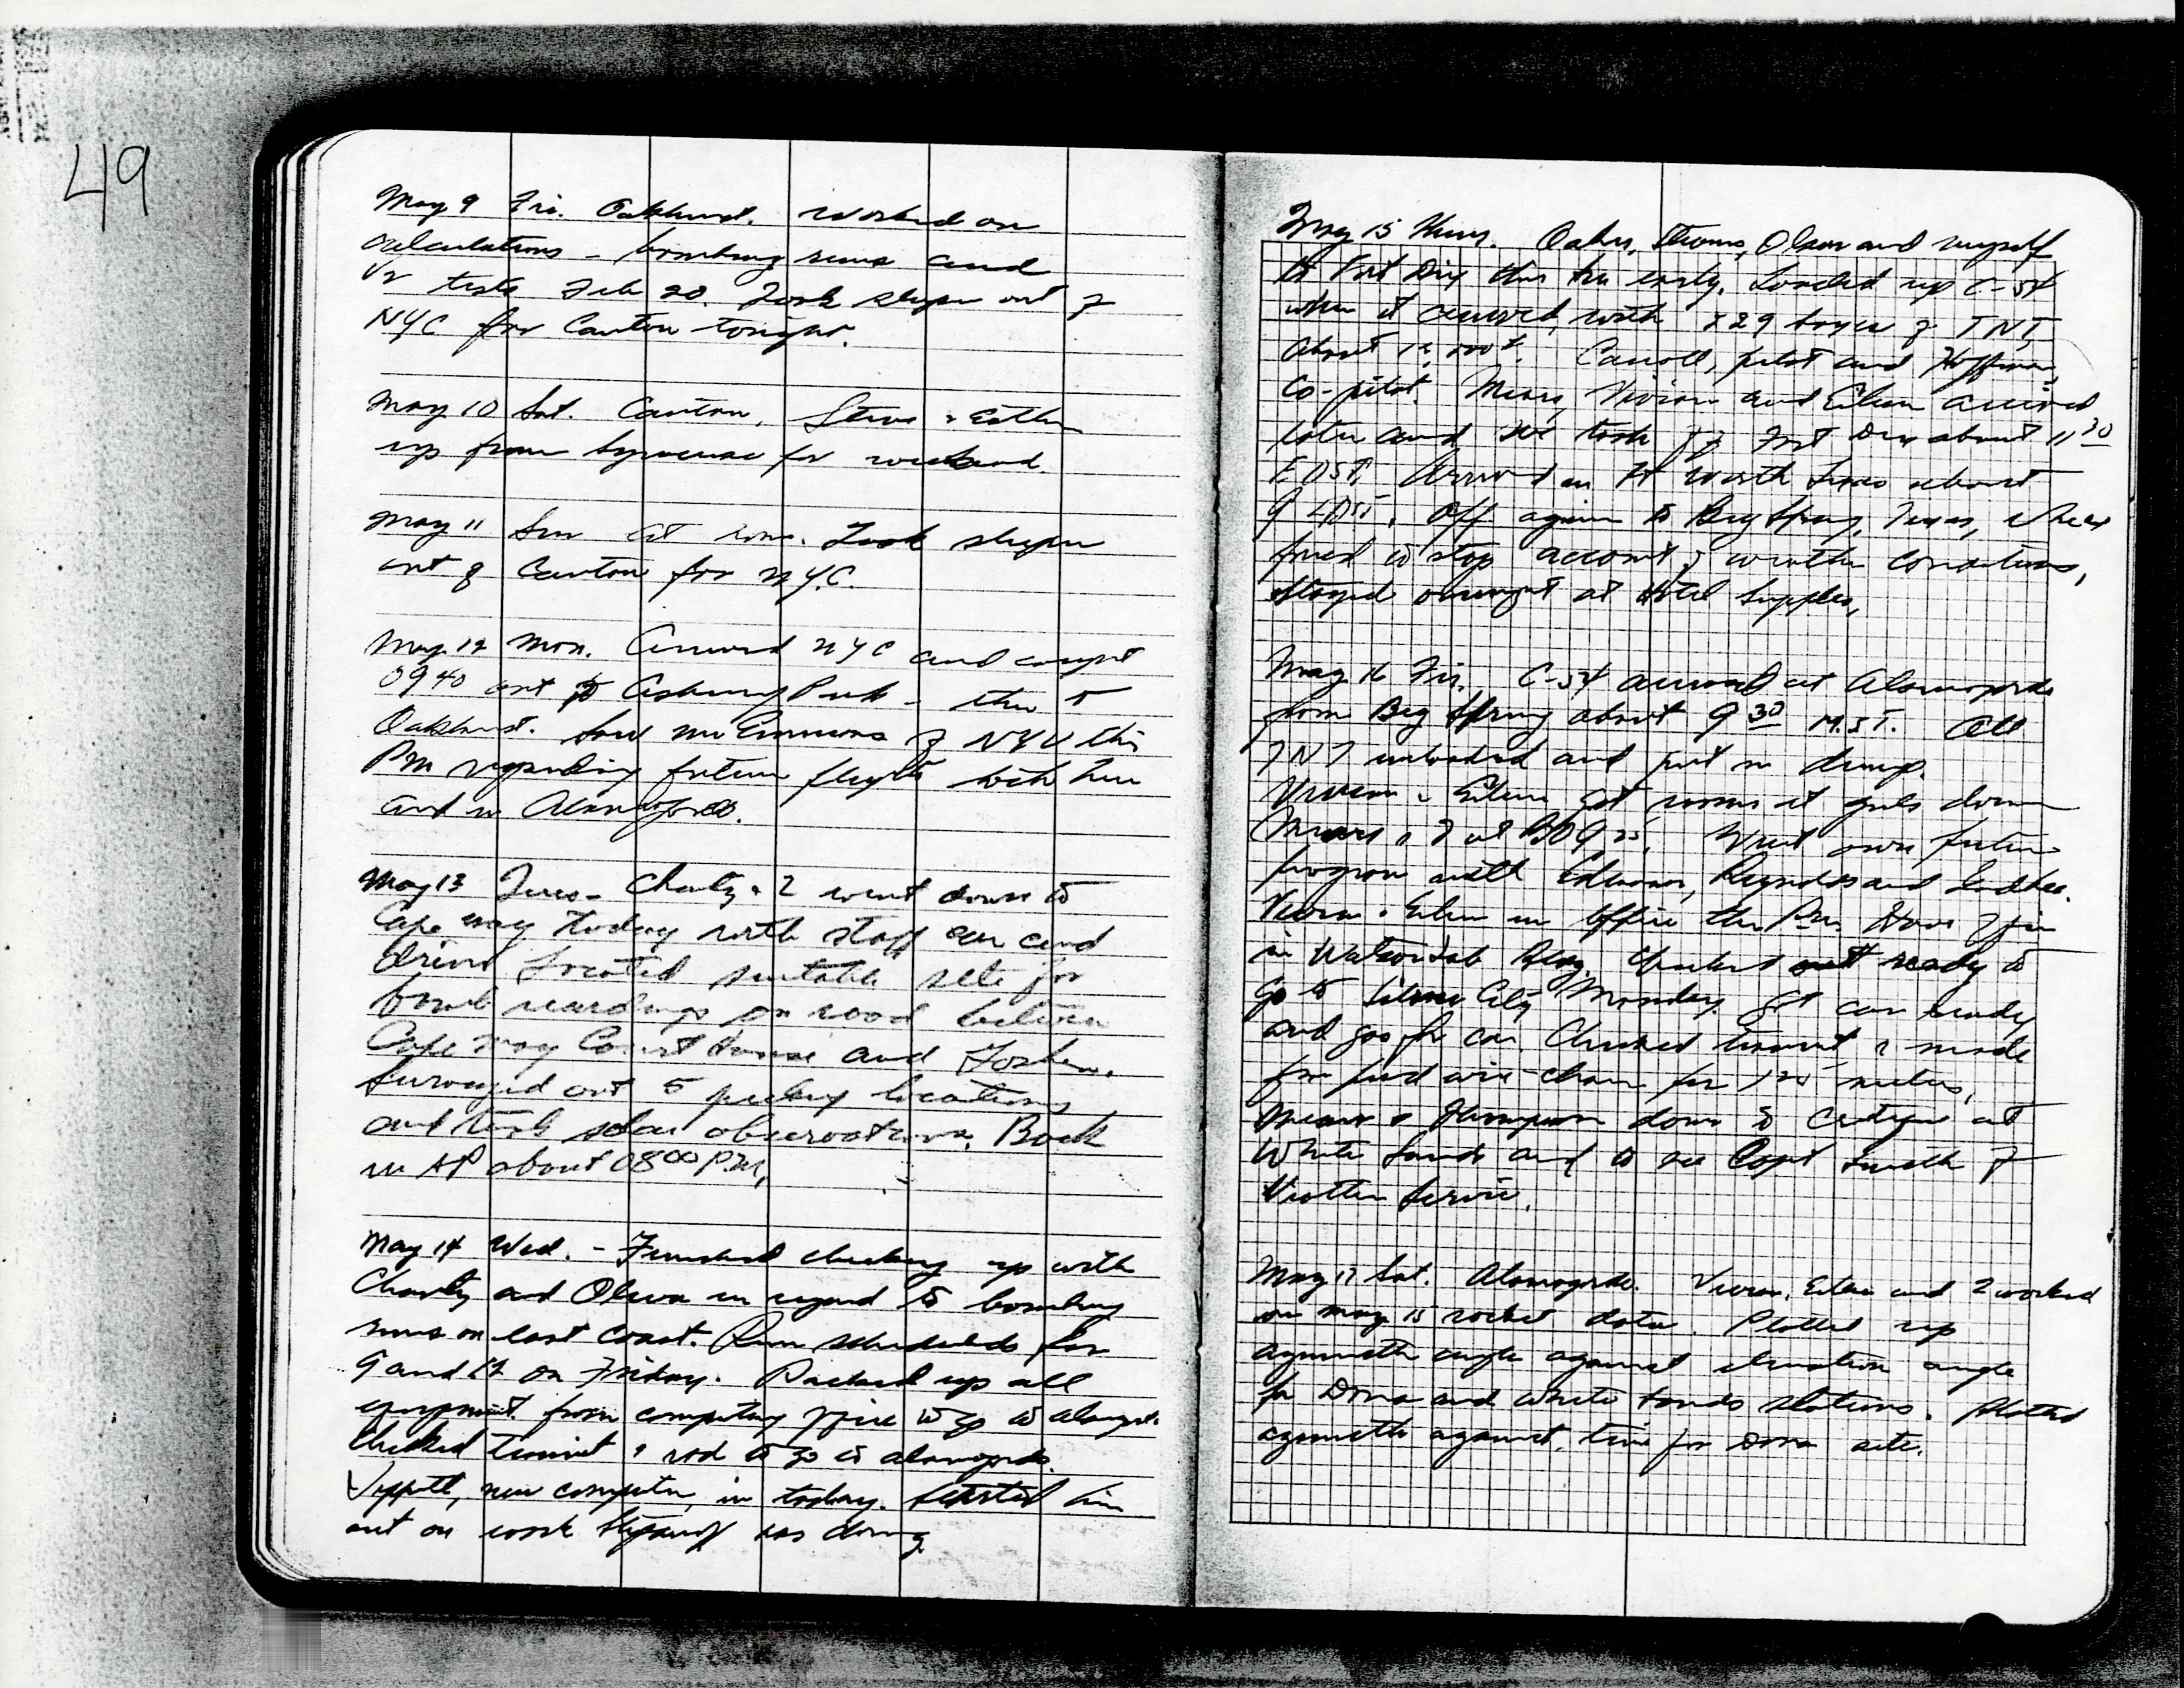 49
May 9 Fri. Oakhurst. Worked on
calculations - bombing runs and
V2 tests Feb 20. Took sleeper out of
NYC for Canton tonight.
May 10 Sat. Canton. Steve & Esther
up from Syracuse for weekend
May 11 Sun at home. Took sleeper
out of Canton for NYC.
May 12 Mon. Arrived NYC and caught
0940 out to Asbury Park - then to
Oakhurst. Saw Mr Emmons of NYU this
PM regarding future flights both here
and in Alamogordo.
May 13 Tues - Charly & I went down to
Cape May today with staff car and
driver. Located suitable site for
bomb recordings on road between
Cape May Court House and Goshen.
Surveyed out 5 locations
and took solar observations. Back
in AP about 0800 P.M.
May 14 Wed. - Finished checking up with
Charly and Olsen in regard to bombing
runs on east coast. Run scheduled for
9 and 12 on Friday. Packed up all
equipment from computing office to go to Alamogordo.
Checked transit & rod to go to Alamogordo.
new computer, in today. Started him
out on work was doing
May 15 Thurs. Oakes, Olsen and myself
to Fort Dix this AM early. Loaded up C-54
when it arrived with 29 boxes of TNT,
About 12,000#. Carroll, pilot and Hoffman,
co-pilot. Mears, Vivian and Eileen arrived
later and we took off Fort Dix about 11 30
EDST. Arrived in Ft Worth Texas about
Off again to Big Spring, Texas, where
forced to stop account of weather conditions,
Stayed overnight at Hotel Settles.
May 16 Fri. C-54 arrived at Alamogordo
from Big Spring about 9 30 M.S.T. All
TNT unloaded and put in dump.
Vivian & Eileen got rooms at girls dorm
Mears & I at BOQ Went over future
program with Edmondo, Reynolds and
Vivian & Eileen in office this PM. Have office
in Watson Lab Bldg. Checked out ready to
go to Silver City Monday. Got car ready
and gas for car. Checked transit & made
wire chain for 125 meters.
Mears & Thompson down to critique at
White Sands and to see Capt Smith of
Weather Service.
May 17 Sat. Alamogordo. Vivian, Eileen and I worked
on May 15 rocket data. Plotted up
azimuth angle against elevation angle
for Dona and White Sands stations. Plotted
azimuth against time for Dona site.